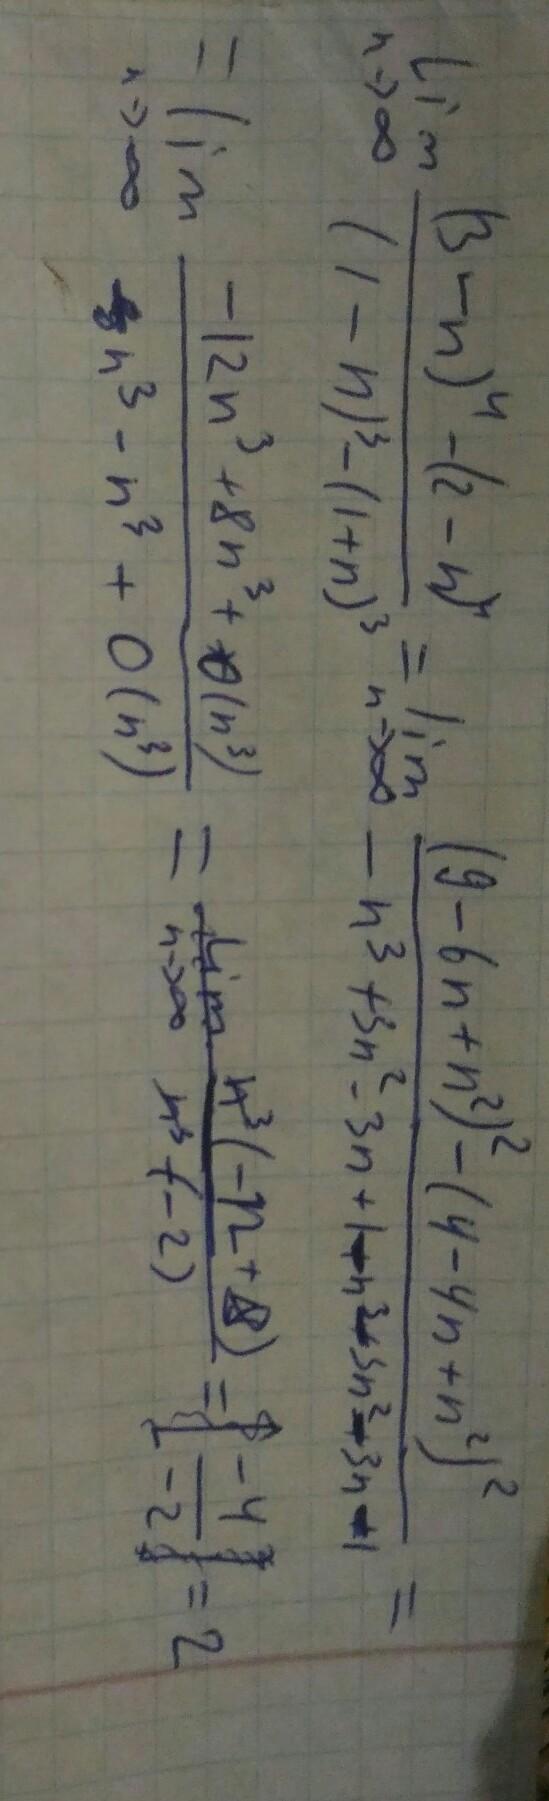 lim n→∞ ((3-n)^4 - (2-n)^4) / ((1-n)^3 - (1+n)^3) = lim n→∞ ((9-6n+n^2)^2 - (4-4n+n^2)^2) / (-n^3+3n^2-3n+1-n^3-3n^2-3n-1) =
= lim n→∞ (-12n^3+8n^3+o(n^3)) / (-n^3-n^3+o(n^3)) = lim n→∞ (n^3(-12+8)) / (n^3(-2)) = [-4 / -2] = 2